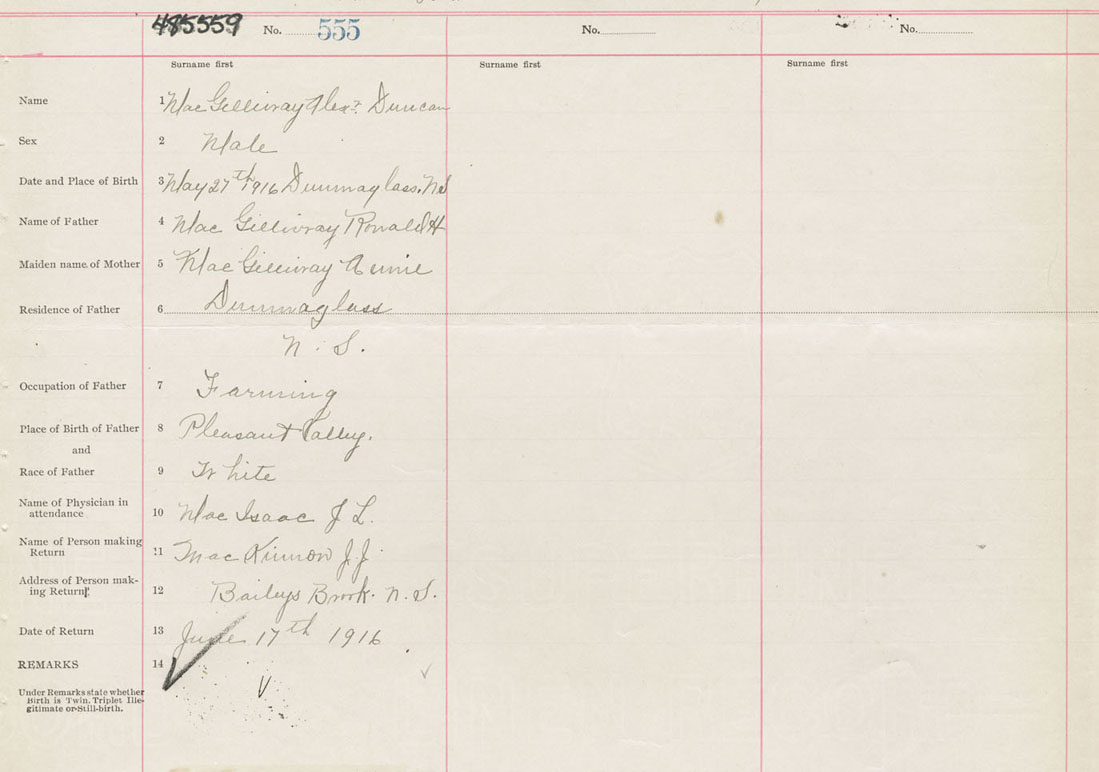 485559 No. 555 No. No.
Surname first Surname first Surname first
Name 1 MacGillivray Alexr. Duncan
Sex 2 Male
Date and Place of Birth 3 May 27th 1916 Dunmaglass. NS
Name of Father 4 Mac Gillivray Ronald H
Maiden name of Mother 5 Mac Gillivray Annie
Residence of Father 6 Dunmaglass
N. S.
Occupation of Father 7 Farming
Place of Birth of Father 8 Pleasant Valley.
and
Race of Father 9 White
Name of Physician in
attendance 10 Mac Isaac J L.
Name of Person making
Return 11 Mac Kinnon J. J.
Address of Person mak-
ing Return 12 Baileys Brook. N. S.
Date of Return 13 June 17th 1916
REMARKS 14
Under Remarks state whether
Birth is Twin, Triplet Ille-
gitimate or Still-birth.